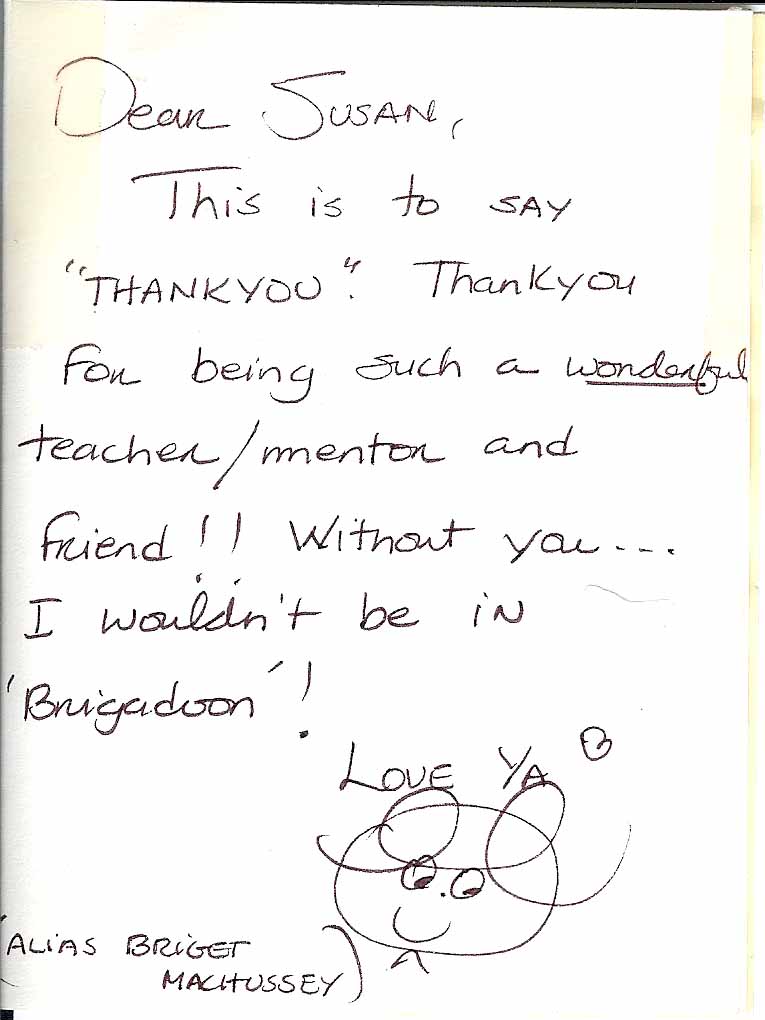 Dear Susan,
This is to say
"THANKYOU". Thankyou
for being such a wonderful
teacher/mentor and
friend!! Without you...
I wouldn't be in
'Brigadoon'!
LOVE YA B
(ALIAS BRIGET
MACHUSSEY)